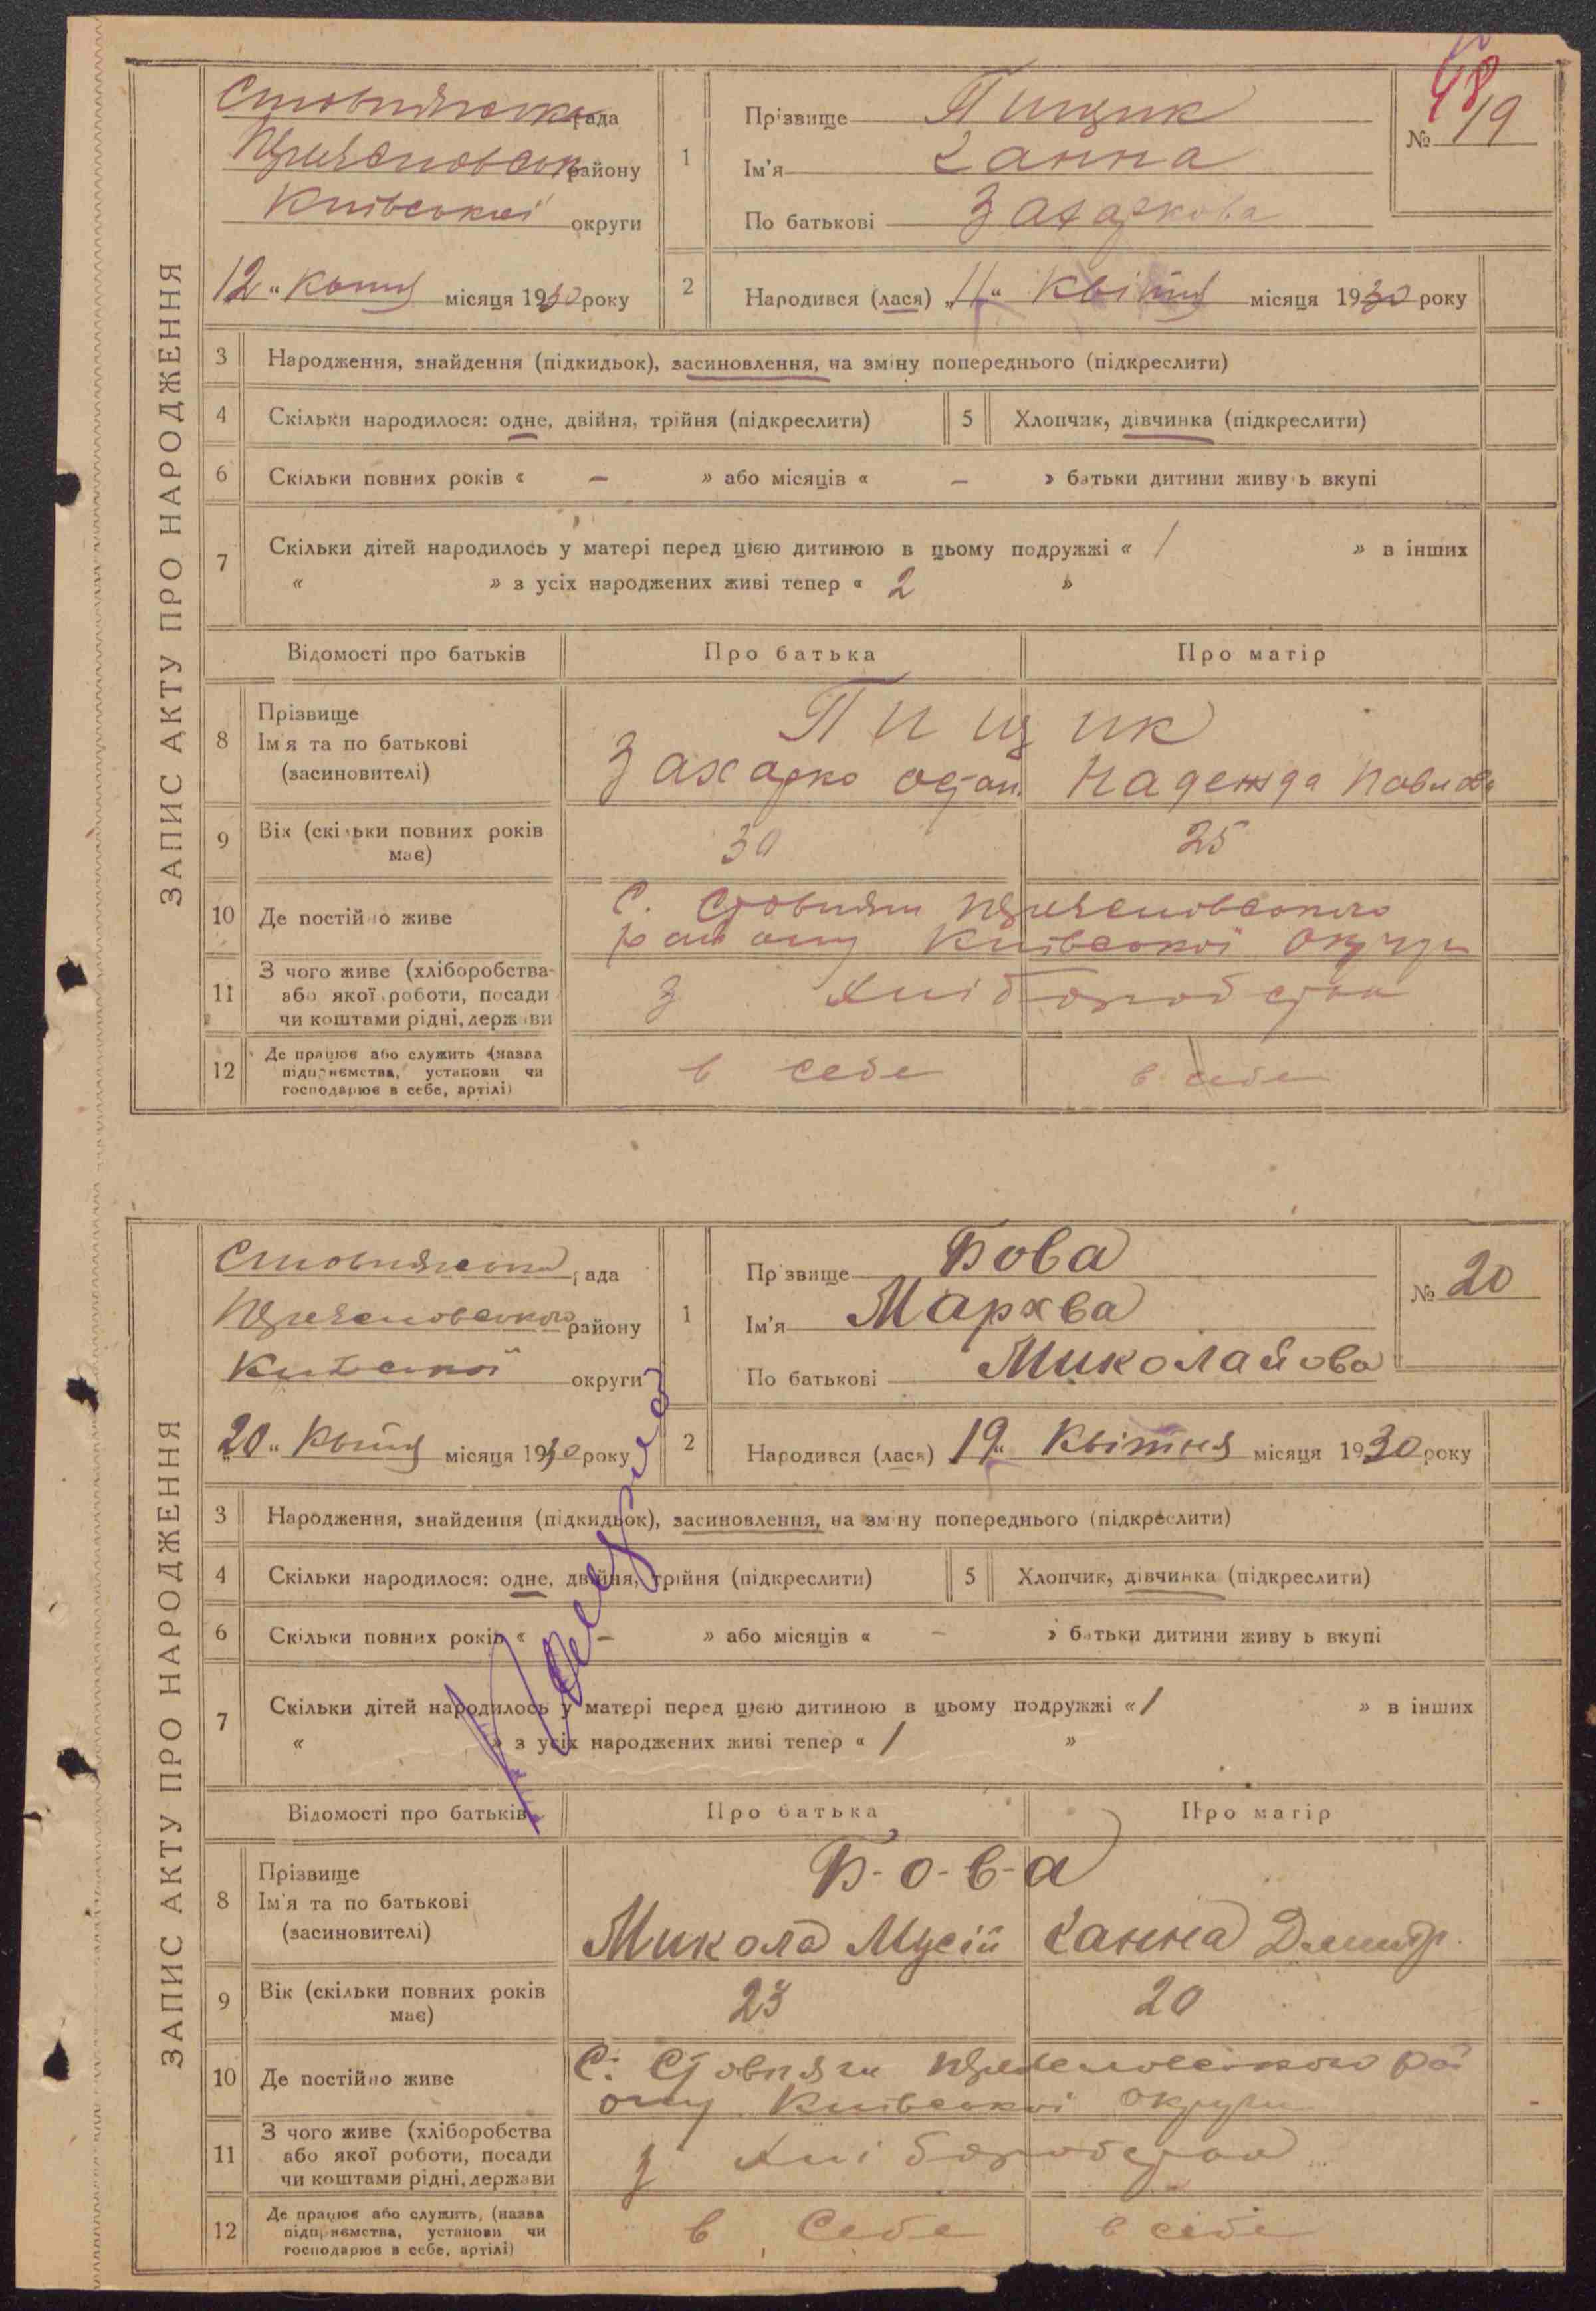 ЗАПИС АКТУ ПРО НАРОДЖЕННЯ
Стовпязька рада
району
Київської округи
12 " Квітня місяця 1930 року
1
Прізвище Пищик
Ім'я Ганна
По батькові Захаркова
48
№ 19
2
Народився (лася) „11" Квітня місяця 1930 року
3 Народження, знайдення (підкидьок), засиновлення, на зміну попереднього (підкреслити)
4 Скільки народилося: одне, двійня, трійня (підкреслити) 5 Хлопчик, дівчинка (підкреслити)
6 Скільки повних років « – » або місяців « – » батьки дитини живуть вкупі
7 Скільки дітей народилось у матері перед цією дитиною в цьому подружжі « 1 » в інших
« » з усіх народжених живі тепер « 2 »
Відомості про батьків Про батька Про матір
8 Прізвище
Ім'я та по батькові
(засиновителі)
Пищик
Захарко Надежда
9 Вік (скільки повних років має)
30 25
10 Де постійно живе
С. Стовпяги
району Київської Округи
11 З чого живе (хліборобства
або якої роботи, посади
чи коштами рідні, держави
З Хліборобства
12 Де працює або служить (назва
підприємства, установи чи
господарює в себе, артілі)
в себе в себе
ЗАПИС АКТУ ПРО НАРОДЖЕННЯ
Стовпязька рада
району
Київської округи
20 " Квітня місяця 1930 року
1
Прізвище Бова
Ім'я Мархва
По батькові Миколайова
№ 20
2
Народився (лася) 19" Квітня місяця 1930 року
3 Народження, знайдення (підкидьок), засиновлення, на зміну попереднього (підкреслити)
4 Скільки народилося: одне, двійня, трійня (підкреслити) 5 Хлопчик, дівчинка (підкреслити)
6 Скільки повних років « – » або місяців « – » батьки дитини живуть вкупі
7 Скільки дітей народилось у матері перед цією дитиною в цьому подружжі « 1 » в інших
« » з усіх народжених живі тепер « 1 »
Відомості про батьків Про батька Про матір
8 Прізвище
Ім'я та по батькові
(засиновителі)
Б-о-в-а
Микола Мусій Ганна Дмитр.
9 Вік (скільки повних років має)
23 20
10 Де постійно живе
С. Стовпяги
Київської округи
11 З чого живе (хліборобства
або якої роботи, посади
чи коштами рідні, держави
З Хліборобства
12 Де працює або служить, (назва
підприємства, установи чи
господарює в себе, артілі)
в Себе в себе